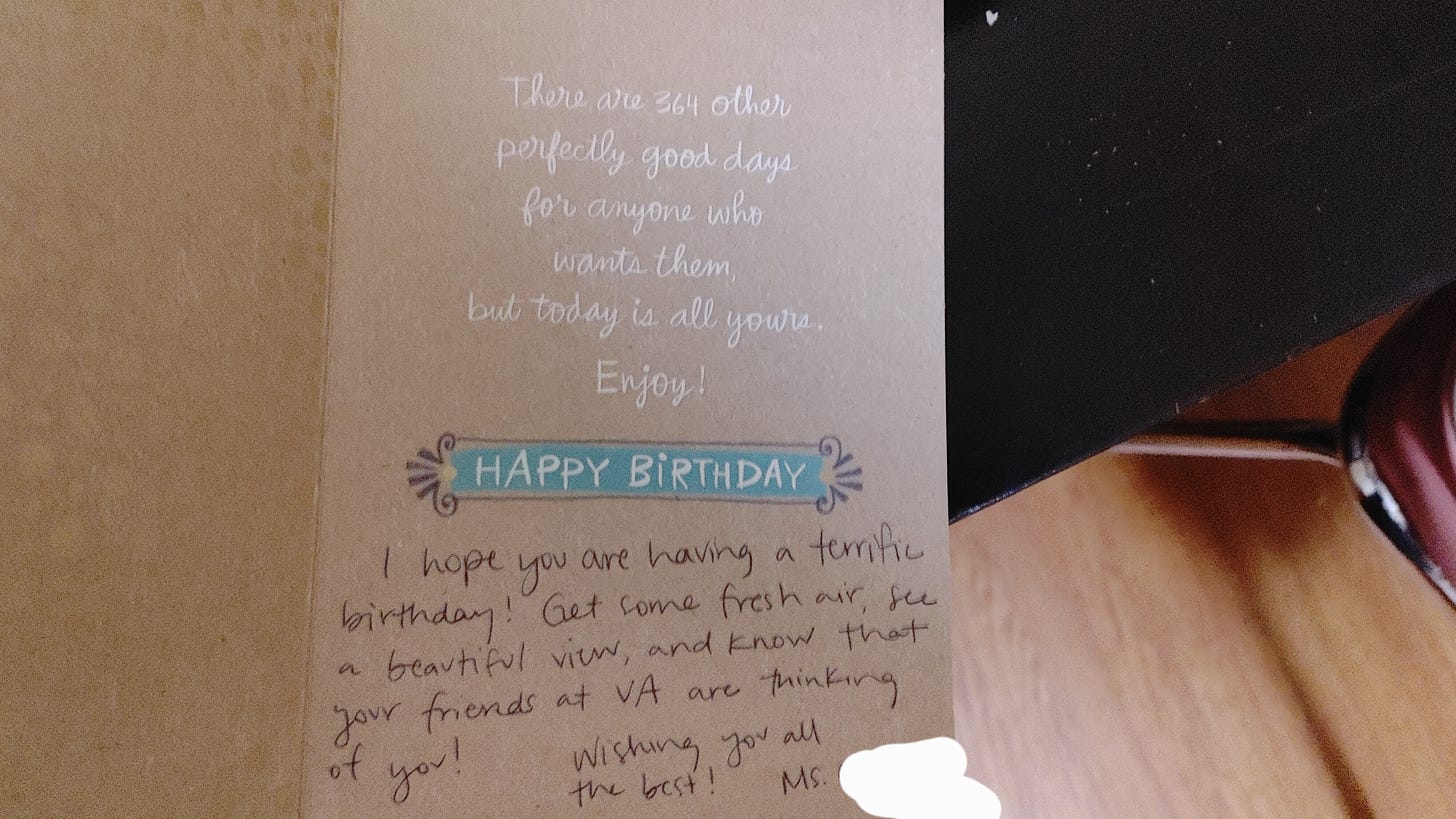 There are 364 other
perfectly good days
for anyone who
wants them,
but today is all yours.
Enjoy!
HAPPY BiRTHDAY
I hope you are having a terrific
birthday! Get some fresh air, see
a beautiful view, and know that
your friends at VA are thinking
of you!
Wishing you all
the best! Ms.